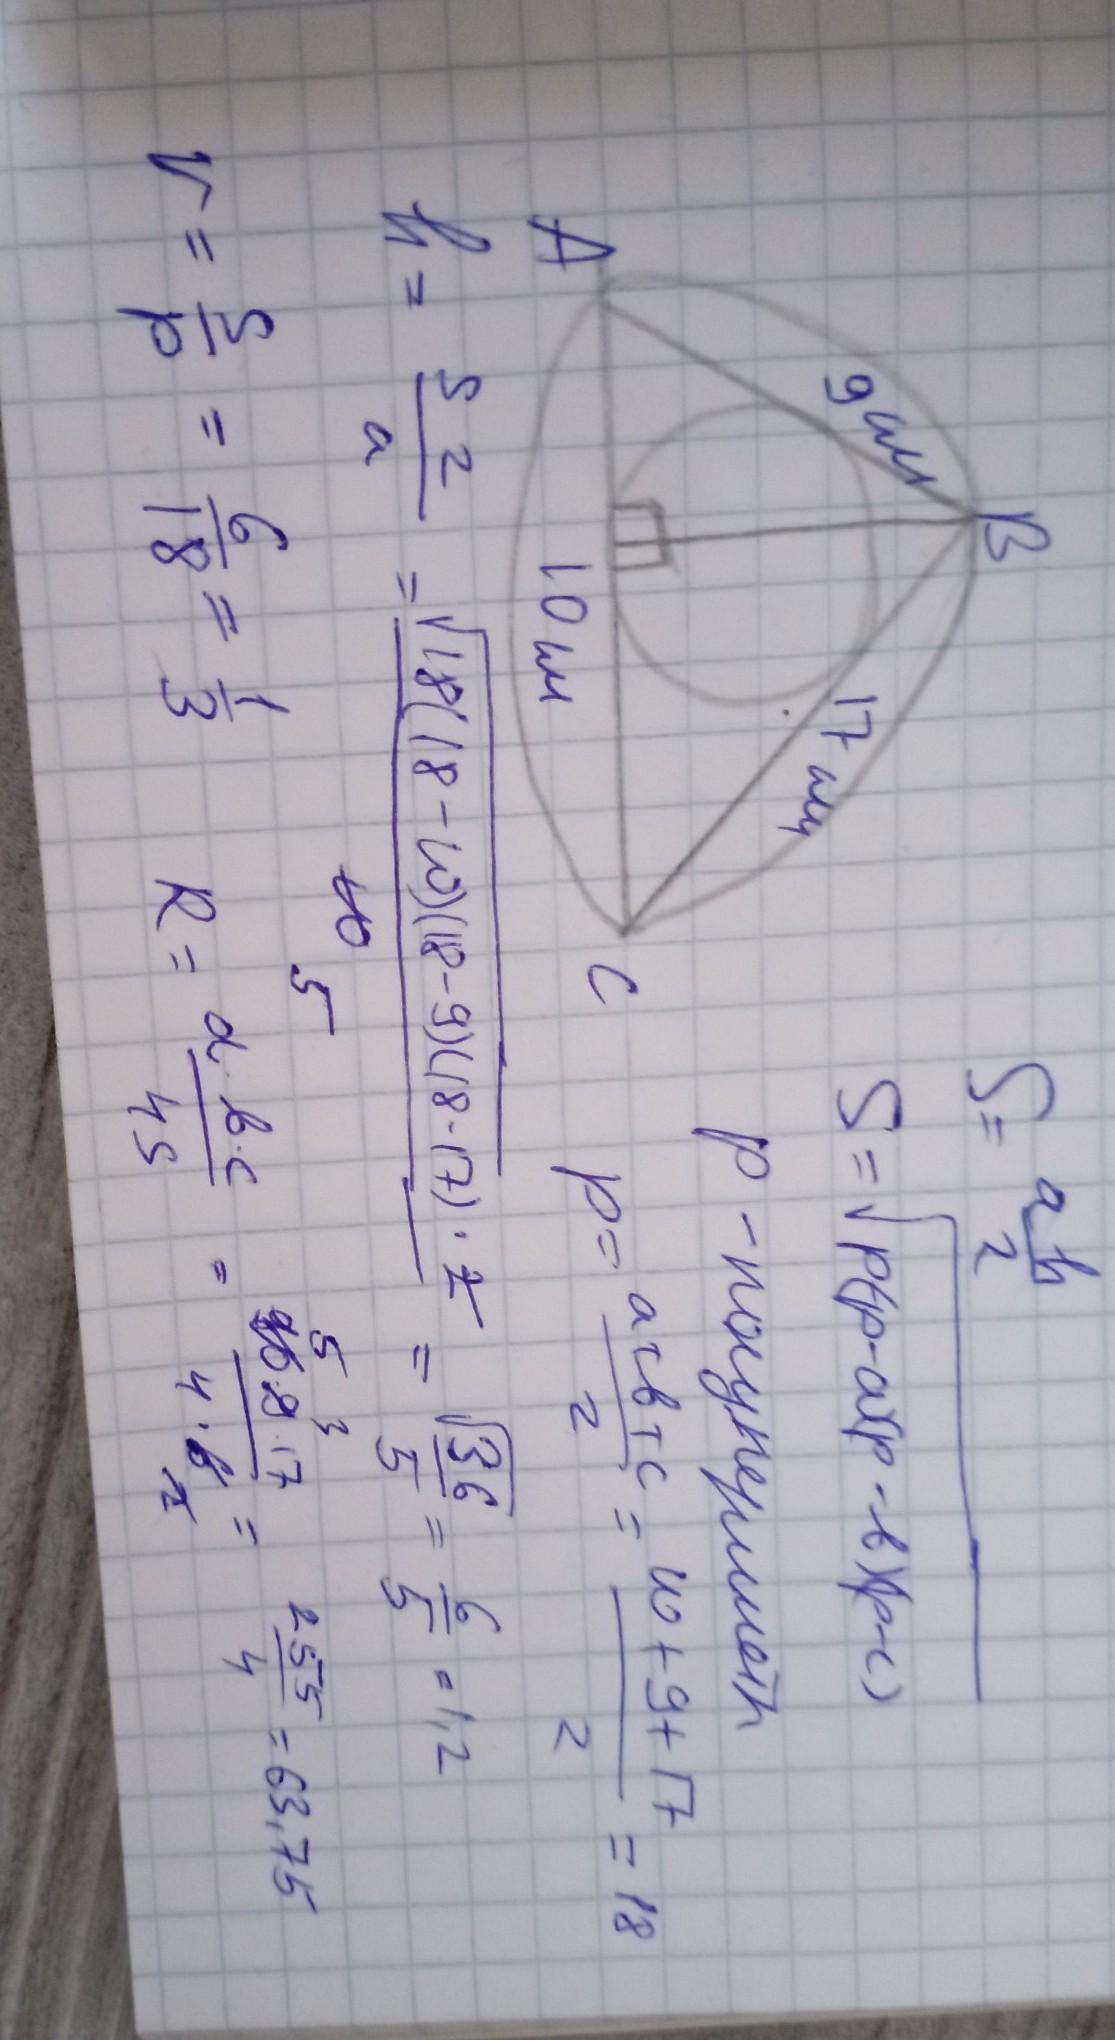 B
9 см
17 см
A
10 см
C
S = ah/2
S = √p(p-a)(p-b)(p-c)
p - полупериметр
p = a+b+c/2 = 10+9+17/2 = 18
h = S2/a = √18(18-10)(18-9)(18-17) · 2 / 10 5 = √36/5 = 6/5 = 1,2
r = S/p = 6/18 = 1/3
R = a·b·c/4S = 10 5 · 9 3 · 17 / 4 · 6 2 = 255/4 = 63,75